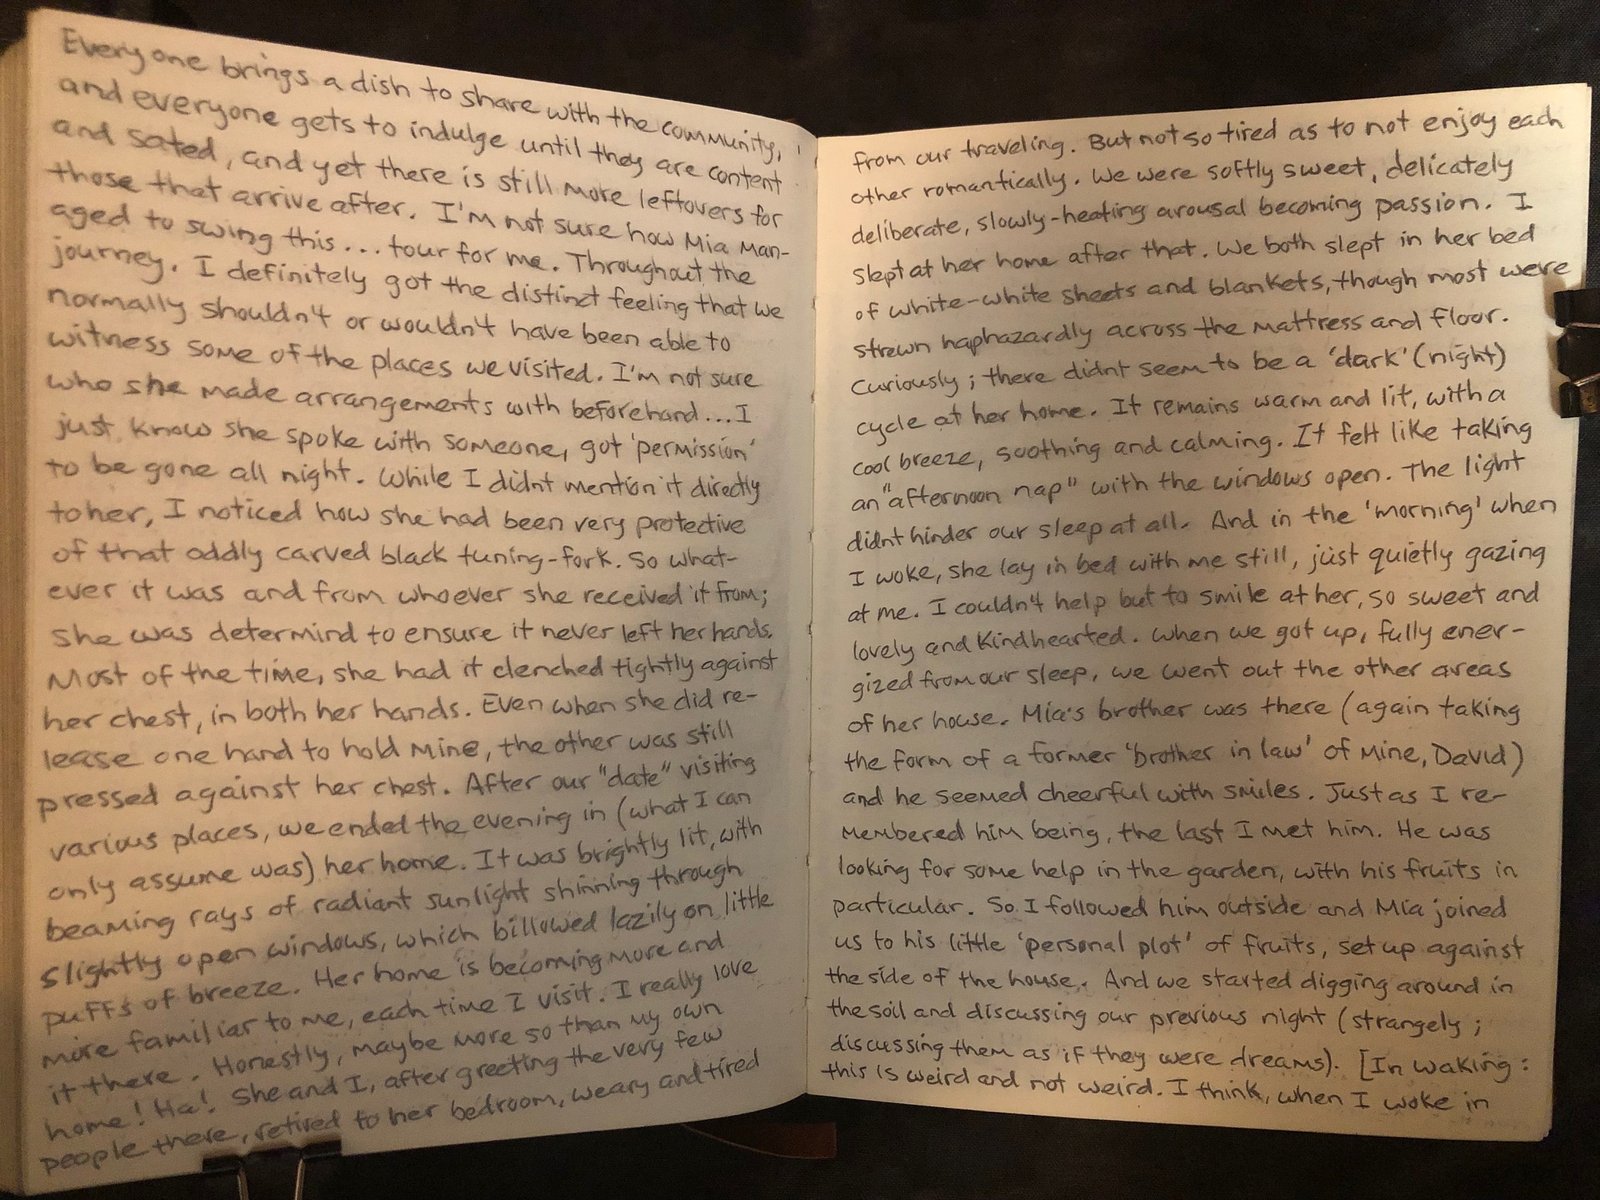 Everyone brings a dish to share with the community,
and everyone gets to indulge until they are content
and sated, and yet there is still more leftovers for
those that arrive after. I'm not sure how Mia man-
aged to swing this... tour for me. Throughout the
journey. I definitely got the distinct feeling that we
normally shouldn't or wouldn't have been able to
witness some of the places we visited. I'm not sure
who she made arrangements with beforehand... I
just know she spoke with someone, got 'permission'
to be gone all night. While I didnt mention it directly
to her, I noticed how she had been very protective
of that oddly carved black tuning-fork. So what-
ever it was and from whoever she received it from;
she was determind to ensure it never left her hands.
Most of the time, she had it clenched tightly against
her chest, in both her hands. Even when she did re-
lease one hand to hold mine, the other was still
pressed against her chest. After our "date" visiting
various places, we ended the evening in (what I can
only assume was) her home. It was brightly lit, with
beaming rays of radiant sunlight shinning through
slightly open windows, which billowed lazily on little
puffs of breeze. Her home is becoming more and
more familiar to me, each time I visit. I really love
it there. Honestly, maybe more so than my own
home! Ha! She and I, after greeting the very few
people there, retired to her bedroom, weary and tired
from our traveling. But not so tired as to not enjoy each
other romantically. We were softly sweet, delicately
deliberate, slowly-heating arousal becoming passion. I
slept at her home after that. We both slept in her bed
of white-white sheets and blankets, though most were
strewn haphazardly across the mattress and floor.
Curiously; there didnt seem to be a 'dark' (night)
cycle at her home. It remains warm and lit, with a
cool breeze, soothing and calming. It felt like taking
an "afternoon nap" with the windows open. The light
didnt hinder our sleep at all. And in the 'morning' when
I woke, she lay in bed with me still, just quietly gazing
at me. I couldn't help but to smile at her, so sweet and
lovely and kindhearted. When we got up, fully ener-
gized from our sleep, we went out the other areas
of her house. Mia's brother was there (again taking
the form of a former 'brother in law' of mine, David)
and he seemed cheerful with smiles. Just as I re-
membered him being, the last I met him. He was
looking for some help in the garden, with his fruits in
particular. So I followed him outside and Mia joined
us to his little 'personal plot' of fruits, set up against
the side of the house. And we started digging around in
the soil and discussing our previous night (strangely;
discussing them as if they were dreams). [In waking:
this is weird and not weird. I think, when I woke in